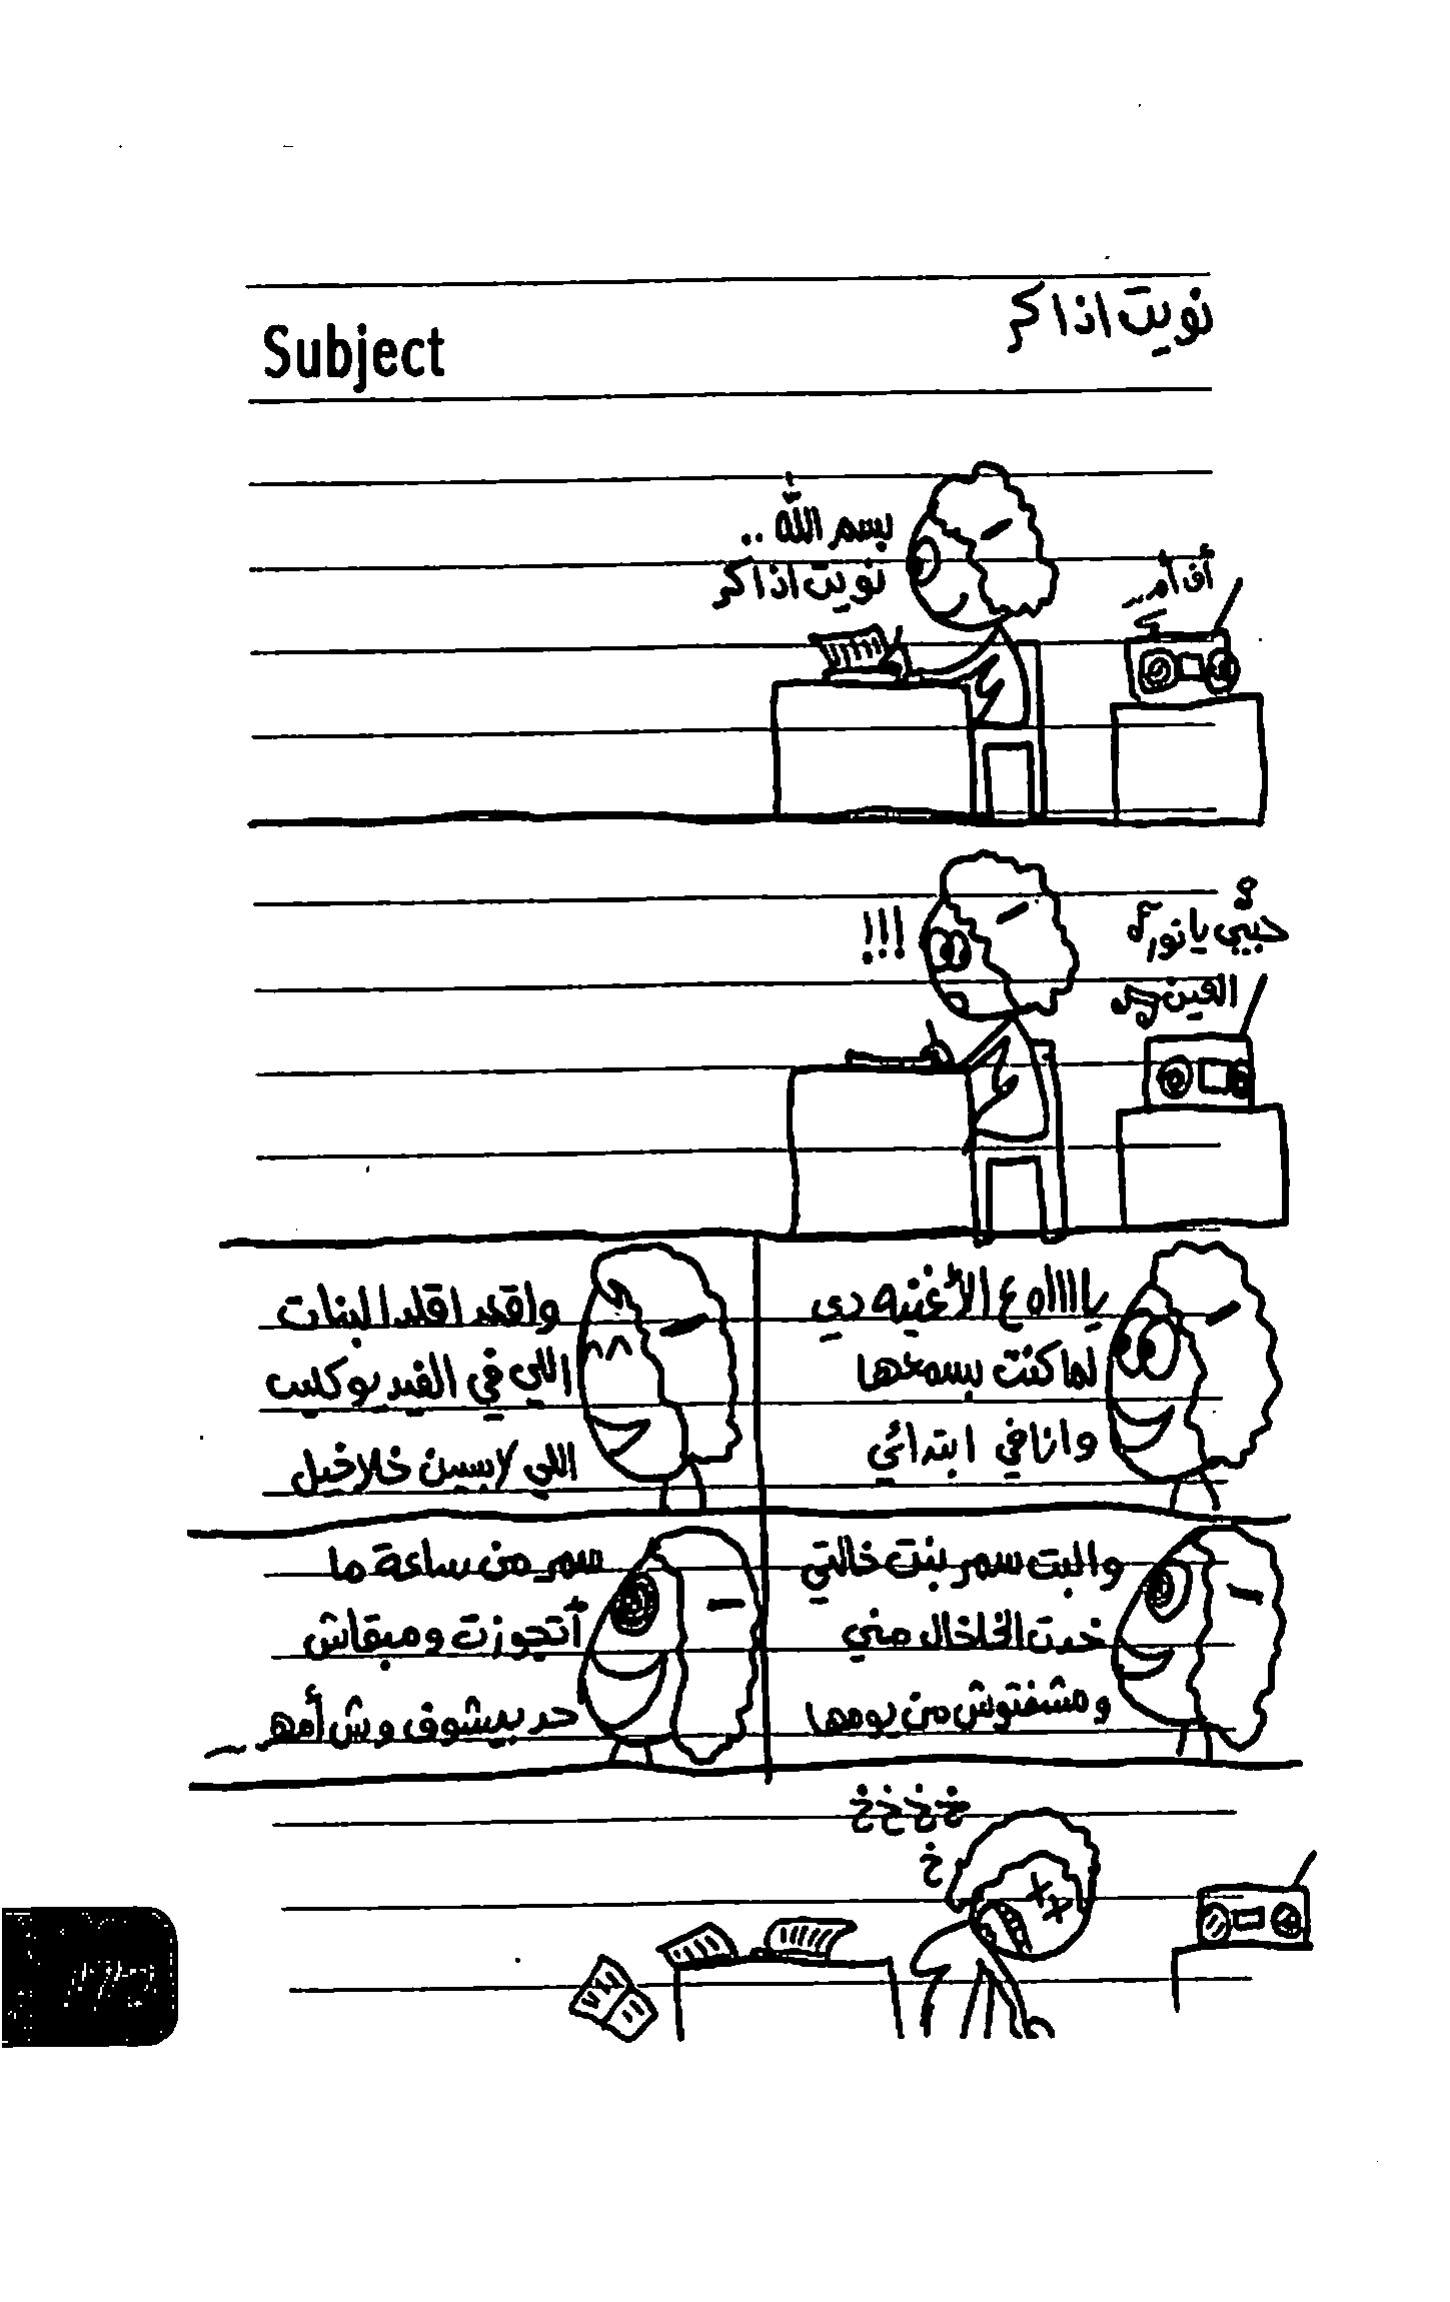 نويت اذاكر
Subject
بسم الله ..
نويت اذاكر
!!!
حبيبي يا نور
العين
يااااه ع الأغنيه دي
لما كنت بسمعها
وانا في ابتدائي
واقعد اقلد البنات
اللي في الفيديو كليب
اللي لابسين خلاخيل
والبت سمر بنت خالتي
خدت الخلخال مني
ومشفتوش من يومها
سمر من ساعة ما
أتجوزت ومبقاش
حد بيشوف وش أمها
خ خ خ خ
خ